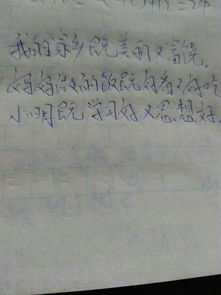 我的家乡既美丽又富饶。
妈妈做的饭既好看又好吃
小明既学习好又思想好。